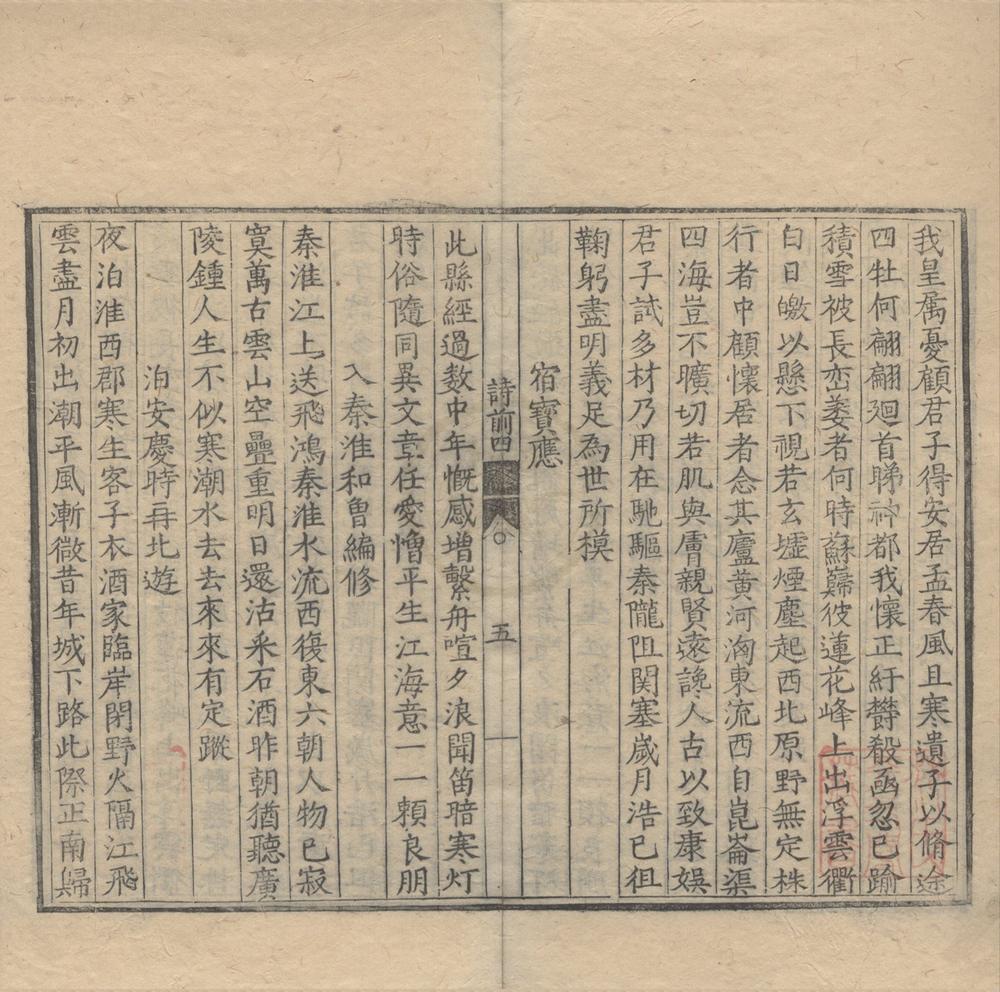 我皇厲憂顧君子得安居孟春風且寒遺子以脩途
四牡何翩翩廻首睇神都我懷正紆欝殽函忽已踰
積雪被長峦萎者何時蘇巋彼蓮花峰上出浮雲衢
白日皦以懸下視若玄墟煙塵起西北原野無定株
行者中顧懷居者念其廬黃河洶東流西自崑崙渠
四海豈不曠切若肌與膚親賢遠讒人古以致康娛
君子試多材乃用在馳驅秦隴阻関塞歲月浩已徂
鞠躬盡明義足為世所模
宿寶應
詩前四
五
此縣經過数中年慨感增繫舟喧夕浪聞笛暗寒灯
時俗隨同異文章任愛憎平生江海意一一頼良朋
入秦淮和曾編修
秦淮江上送飛鴻秦淮水流西復東六朝人物已寂
寞萬古雲山空疊重明日還沽采石酒昨朝猶聽廣
陵鍾人生不似寒潮水去去來來有定蹤
泊安慶時再北遊
夜泊淮西郡寒生客子衣酒家臨岸閉野火隔江飛
雲盡月初出潮平風漸微昔年城下路此際正南歸